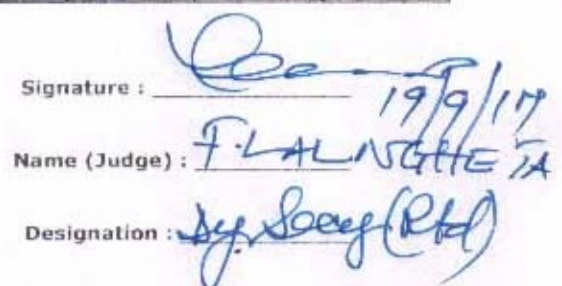 Signature :
19/9/17
Name (Judge) : F. LALNGHETA
Designation : Dy. Secy (Rtd)